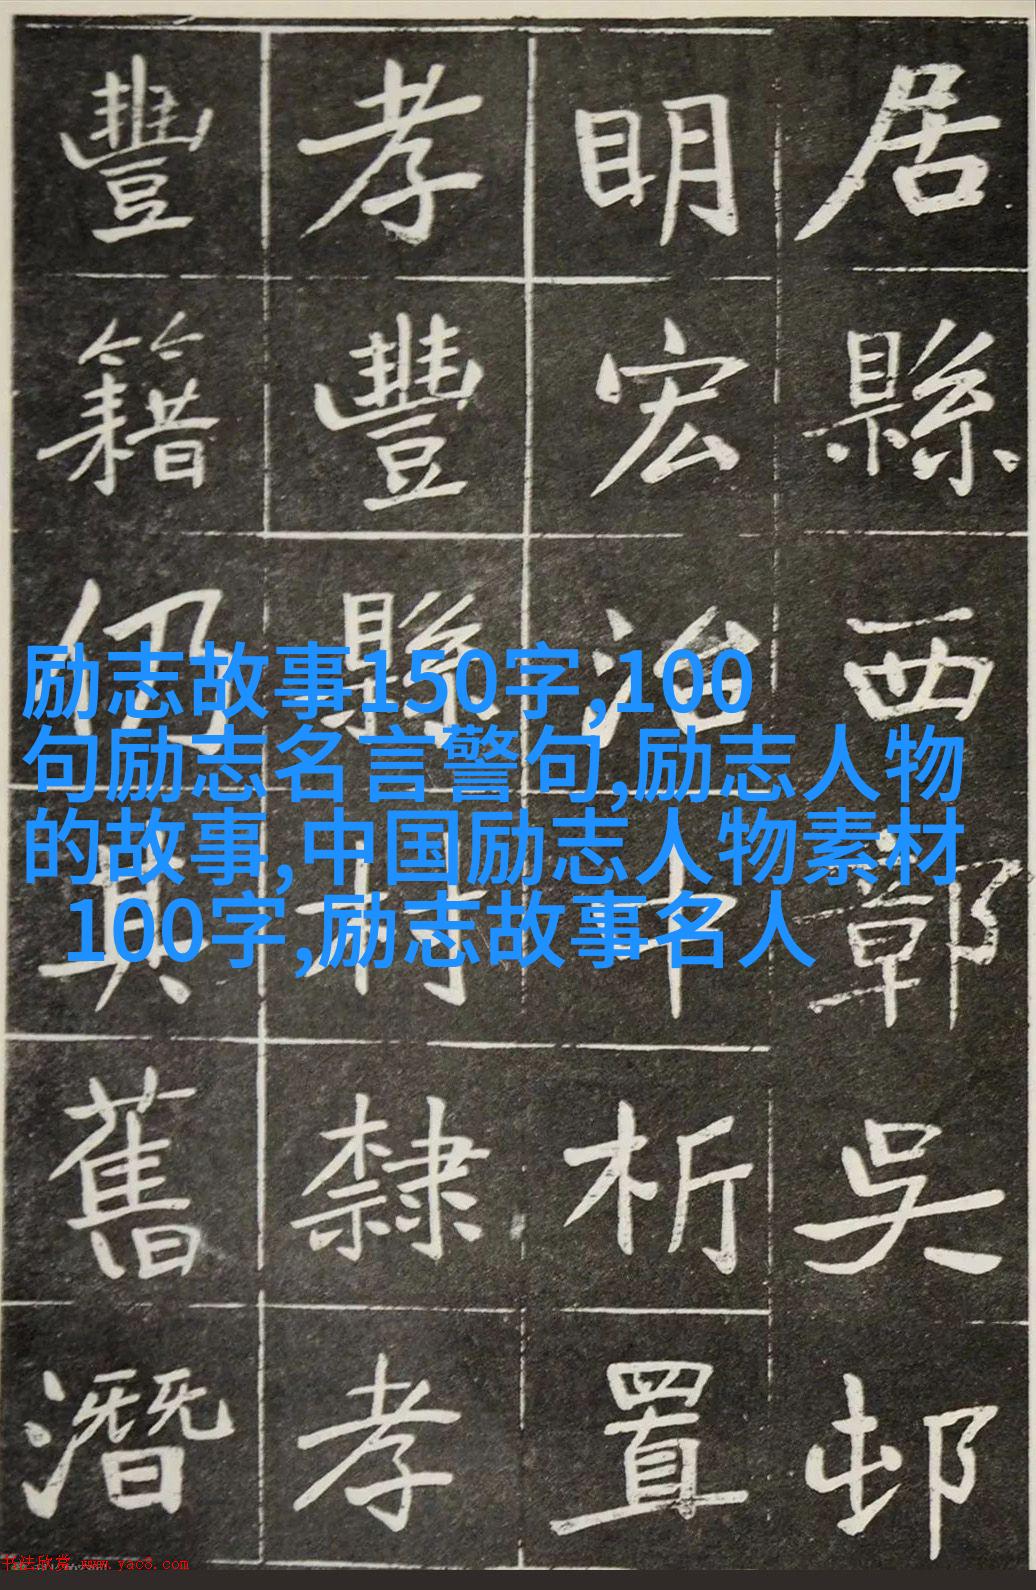 居縣西鄣吳邨
眀宏治中析置
孝豐縣村隸孝
豐籍仍其舊潛
励志故事150字,100
句励志名言警句,励志人物
的故事,中国励志人物素材
100字,励志故事名人
书法欣赏 www.yac8.com